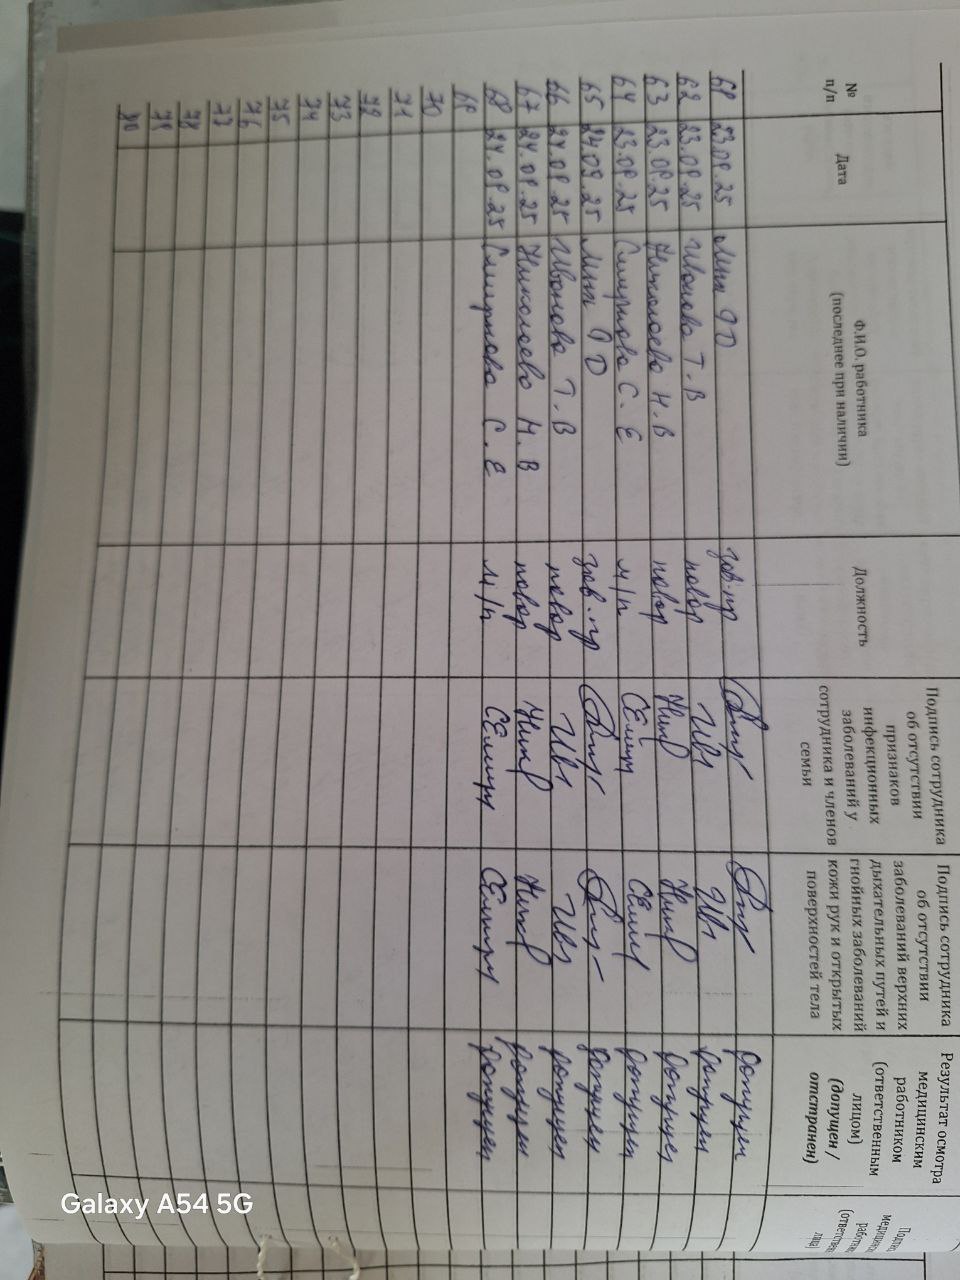 № п/п
Дата
Ф.И.О. работника
(последнее при наличии)
Должность
Подпись сотрудника
об отсутствии
признаков
инфекционных
заболеваний у
сотрудника и членов
семьи
Подпись сотрудника
об отсутствии
заболеваний верхних
дыхательных путей и
гнойных заболеваний
кожи рук и открытых
поверхностей тела
Результат осмотра
медицинским
работником
(ответственным
лицом)
(допущен /
отстранен)
61 23.09.25 зав.пр допущен
62 23.09.25 Иванова Т.В повар Ив допущен
63 23.09.25 Николаева Н.В повар Ник допущен
64 23.09.25 Смирнова С.Е м/п допущен
65 24.09.25 зав.пр допущен
66 24.09.25 Иванова Т.В повар Ив допущен
67 24.09.25 Николаева Н.В повар Ник допущен
68 24.09.25 Смирнова С.Е м/п допущен
69
70
71
72
73
74
75
76
77
78
79
80
Galaxy A54 5G